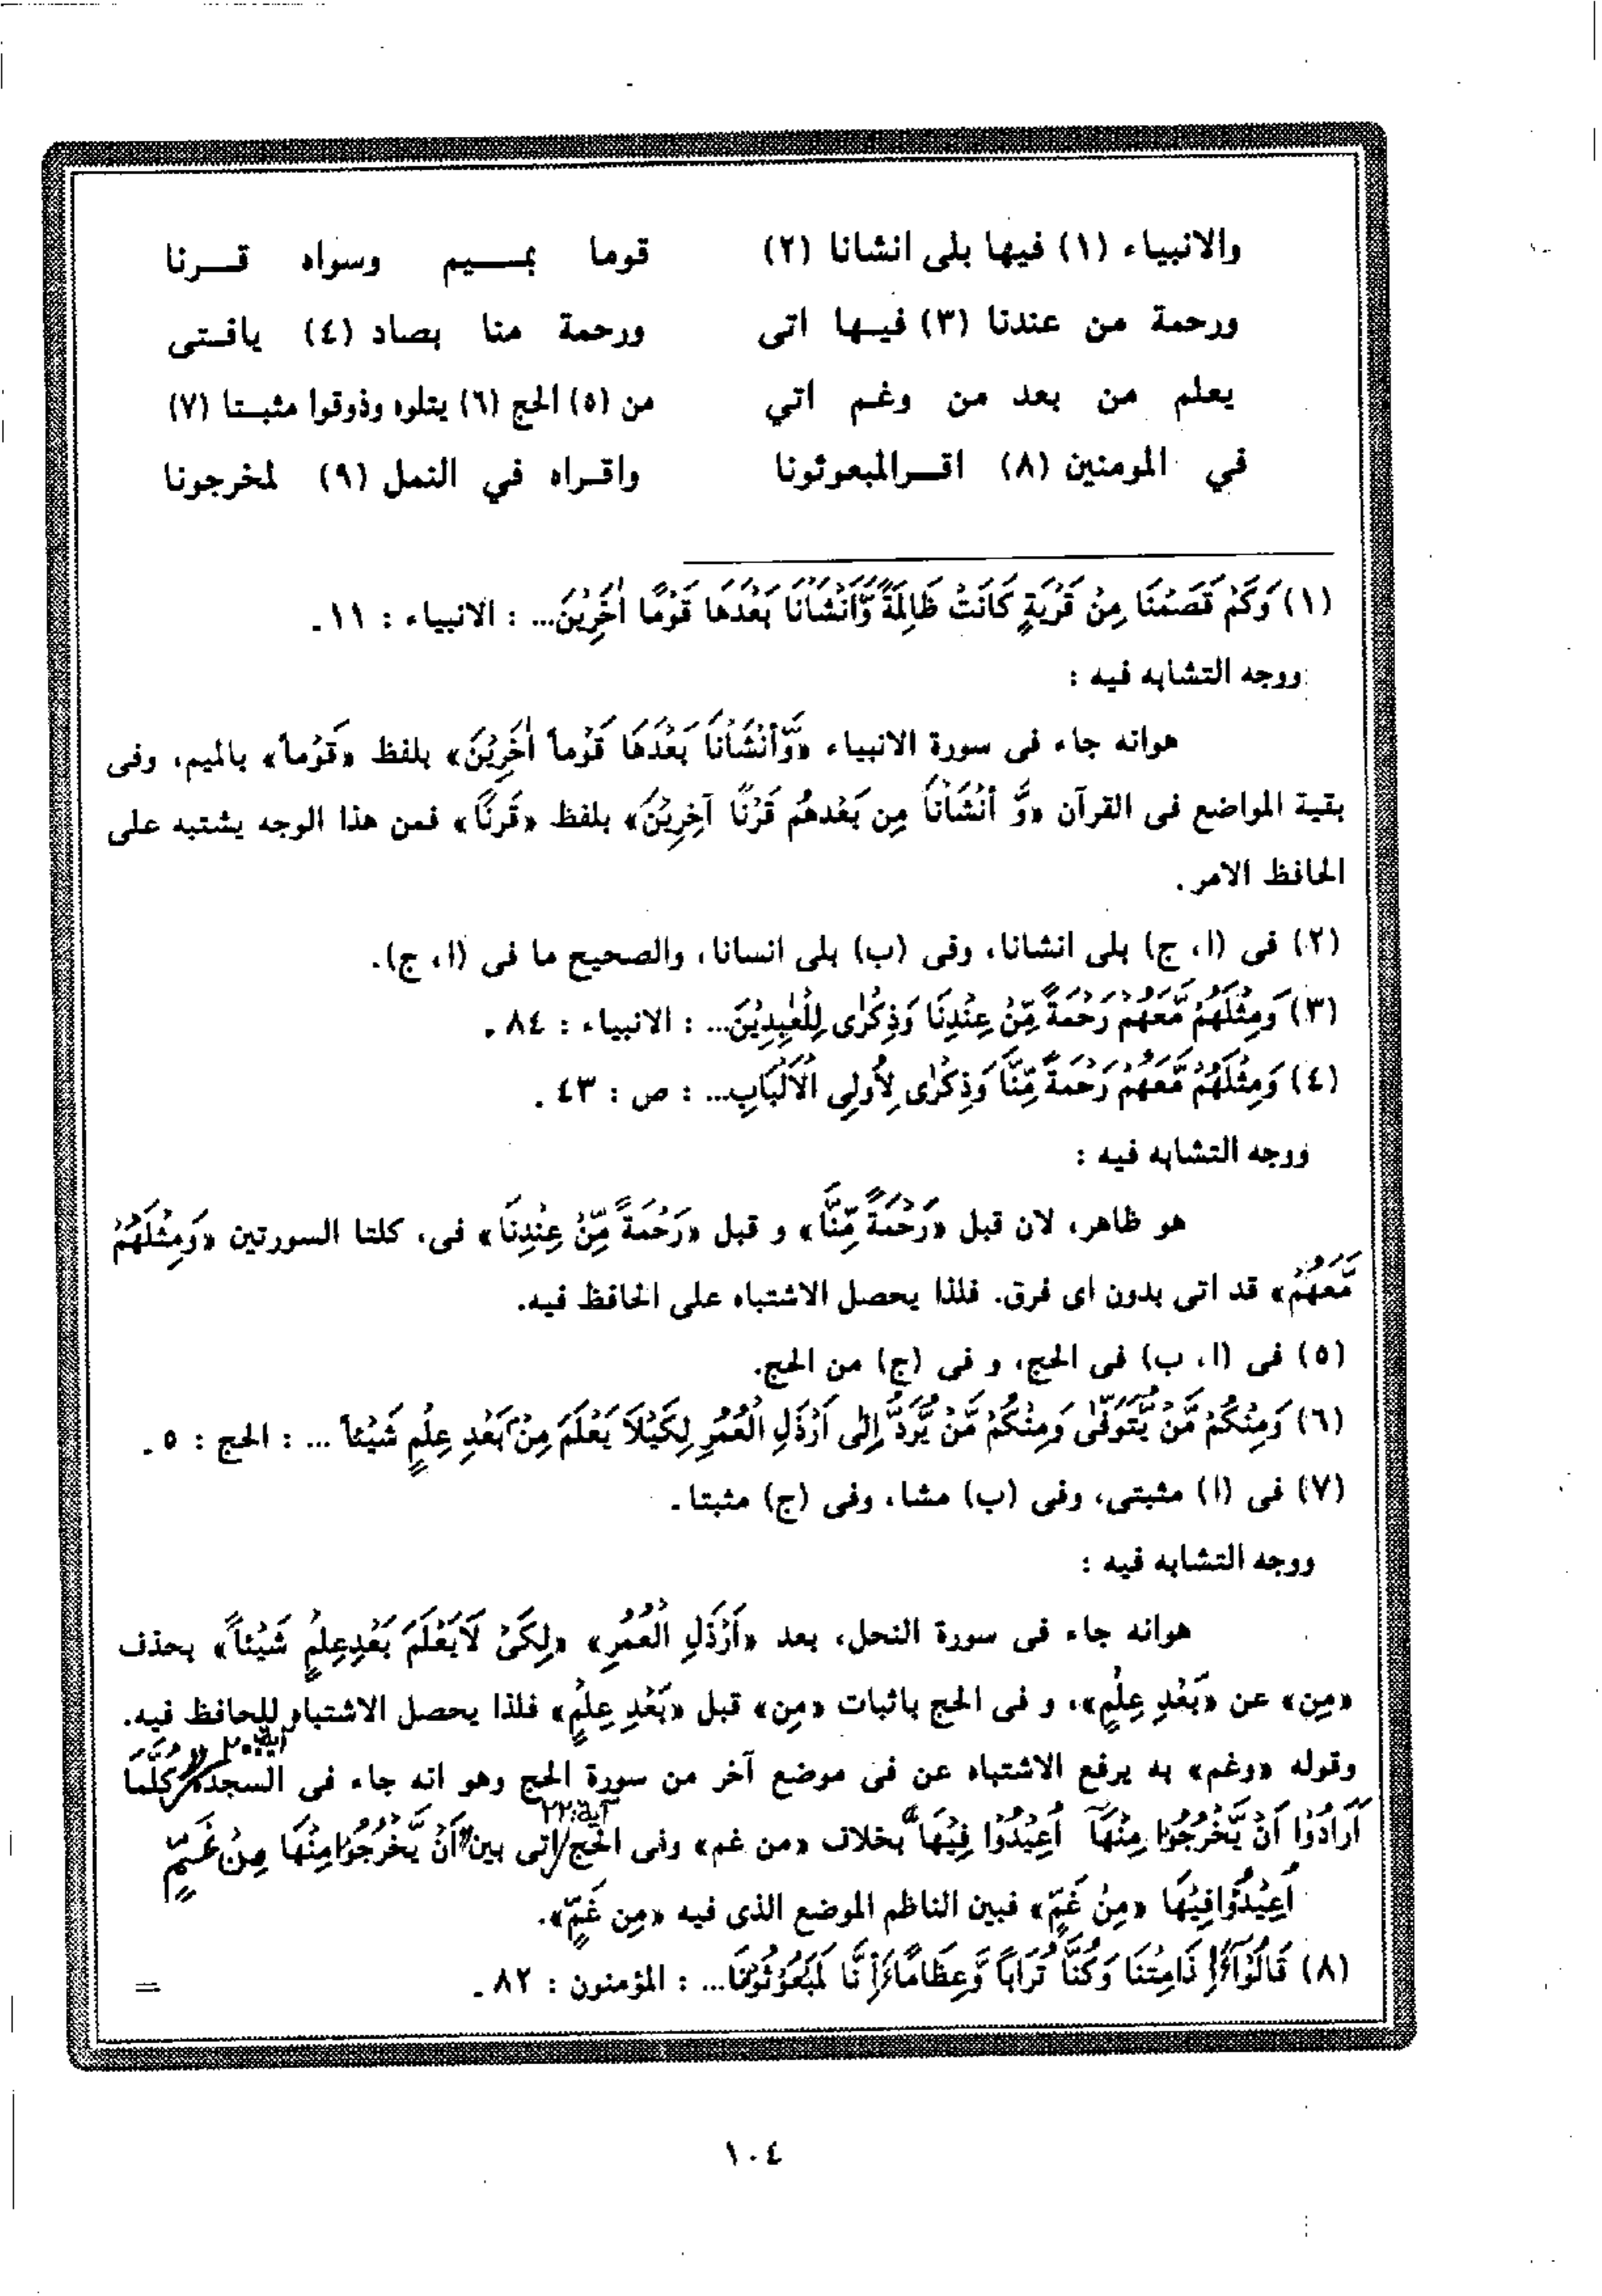 والانبياء (١) فيها بلى انشانا (٢) قوما بميم وسواه قرنا
ورحمة من عندنا (٣) فيها اتى ورحمة منا بصاد (٤) يافتى
يعلم من بعد من وغم اتي من (٥) الحج (٦) يتلوه وذوقوا مثبتا (٧)
في المومنين (٨) اقرالمبعوثونا واقراه في النمل (٩) لمخرجونا
(١) وَكَمْ قَصَمْنَا مِنْ قَرْيَةٍ كَانَتْ ظَالِمَةً وَّاَنْشَاْنَا بَعْدَهَا قَوْمًا اٰخَرِيْنَ... : الانبياء : ١١ .
ووجه التشابه فيه :
هوانه جاء فى سورة الانبياء «وَّأَنْشَاْنَا بَعْدَهَا قَوْماً اٰخَرِيْنَ» بلفظ «قَوْماً» بالميم، وفى
بقية المواضع فى القرآن «وَّ أَنْشَاْنَا مِن بَعْدهُم قَرْنًا آخَرِيْنَ» بلفظ «قَرنًا» فمن هذا الوجه يشتبه على
الحافظ الامر.
(٢) فى (ا، ج) بلى انشانا، وفى (ب) بلى انسانا، والصحيح ما فى (ا، ج).
(٣) وَمِثْلَهُمْ مَّعَهُمْ رَحْمَةً مِّنْ عِنْدِنَا وَذِكْرٰى لِلْعٰبِدِيْنَ... : الانبياء : ٨٤ .
(٤) وَمِثْلَهُمْ مَّعَهُمْ رَحْمَةً مِّنَّا وَذِكْرٰى لِأُولِى الْاَلْبَابِ... : ص : ٤٣ .
ووجه التشابه فيه :
هو ظاهر، لان قبل «رَحْمَةً مِّنَّا» و قبل «رَحْمَةً مِّنْ عِنْدِنَا» فى، كلتا السورتين «وَمِثْلَهُمْ
مَّعَهُمْ» قد اتى بدون اى فرق. فلذا يحصل الاشتباه على الحافظ فيه.
(٥) فى (ا، ب) فى الحج، و فى (ج) من الحج.
(٦) وَمِنْكُمْ مَّنْ يُّتَوَفّٰى وَمِنْكُمْ مَّنْ يُّرَدُّ إِلٰى اَرْذَلِ الْعُمُرِ لِكَيْلَا يَعْلَمَ مِنْ بَعْدِ عِلْمٍ شَيْئاً ... : الحج : ٥ .
(٧) فى (ا) مثبتى، وفى (ب) مشا، وفى (ج) مثبتا .
ووجه التشابه فيه :
هوانه جاء فى سورة النحل، بعد «اَرْذَلِ الْعُمُرِ» «لِكَىْ لَايَعْلَمَ بَعْدِعِلْمٍ شَيْئاً» بحذف
«مِن» عن «بَعْدِ عِلْمٍ»، و فى الحج باثبات «مِن» قبل «بَعْدِ عِلْمٍ» فلذا يحصل الاشتباه للحافظ فيه.
وقوله «وغم» به يرفع الاشتباه عن فى موضع آخر من سورة الحج وهو انه جاء فى السجدة آية:٢٠ «كُلَّمَا
اَرَادُوْا اَنْ يَّخْرُجُوْا مِنْهَآ اُعِيْدُوْا فِيْهَا» بخلاف «من غم» وفى الحج آية:٢٢ اتى بين «اَنْ يَّخْرُجُوْامِنْهَا مِنْ غَمٍّ
اُعِيْدُوْافِيْهَا «مِنْ غَمٍّ» فبين الناظم الموضع الذى فيه «مِن غَمٍّ».
(٨) قَالُوْآءَاِذَامِتْنَا وَكُنَّا تُرَاباً وَّعِظَامًاءَاِنَّا لَمَبْعُوْثُوْنَا... : المؤمنون : ٨٢ . =
١٠٤